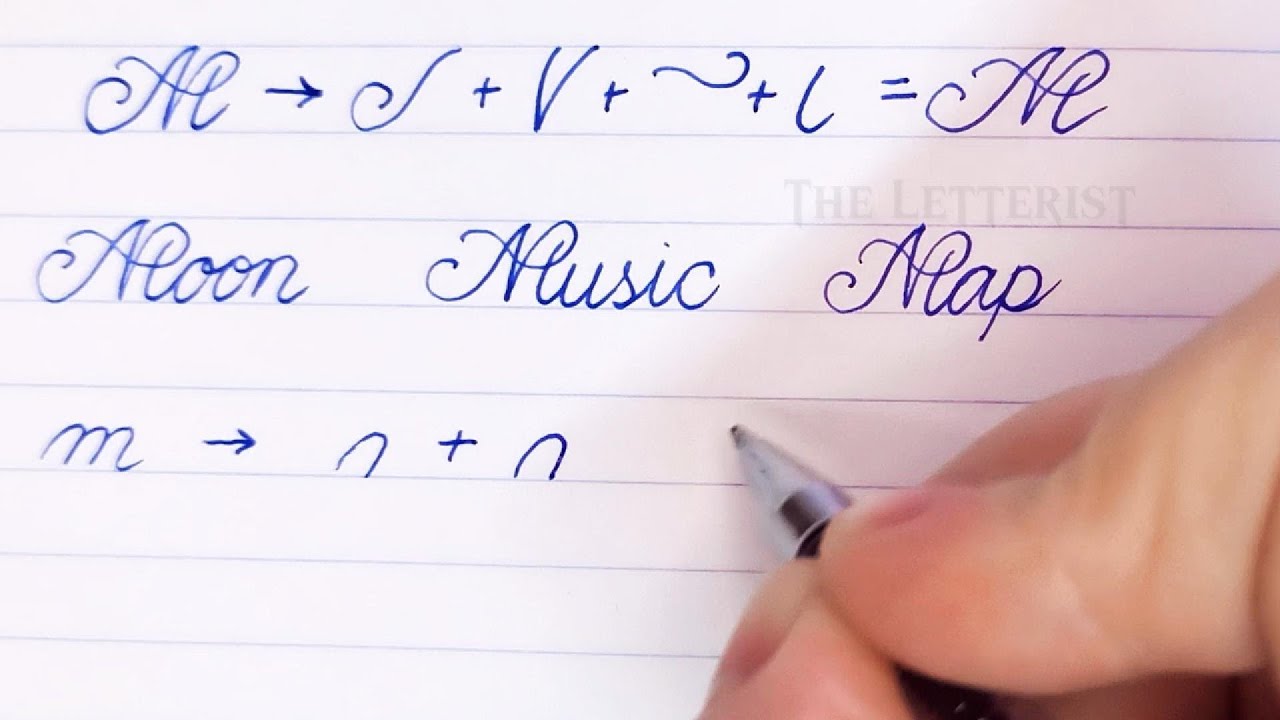 M → ╯ + V + ~ + l = M
The Letterist
Moon Music Map
m → n + n